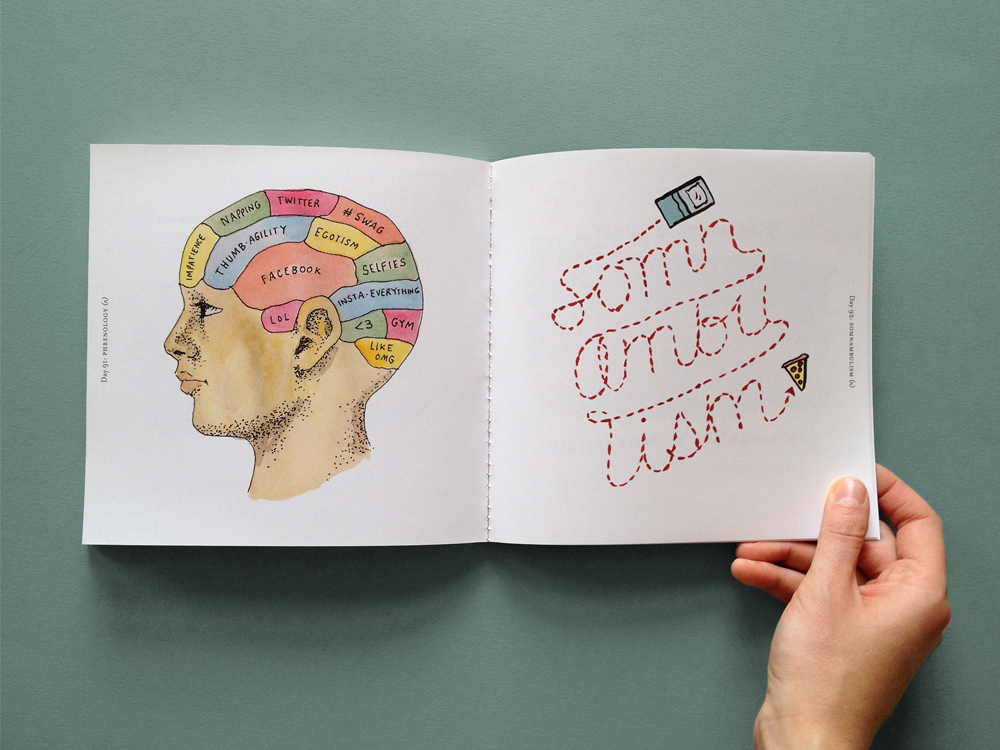 Day 91: PHRENOLOGY (6)
IMPATIENCE
NAPPING
TWITTER
#SWAG
THUMB-AGILITY
EGOTISM
FACEBOOK
SELFIES
INSTA-EVERYTHING
LOL
<3
GYM
LIKE
OMG
somn
ambu
lism
Day 92: SOMNAMBULISM (6)